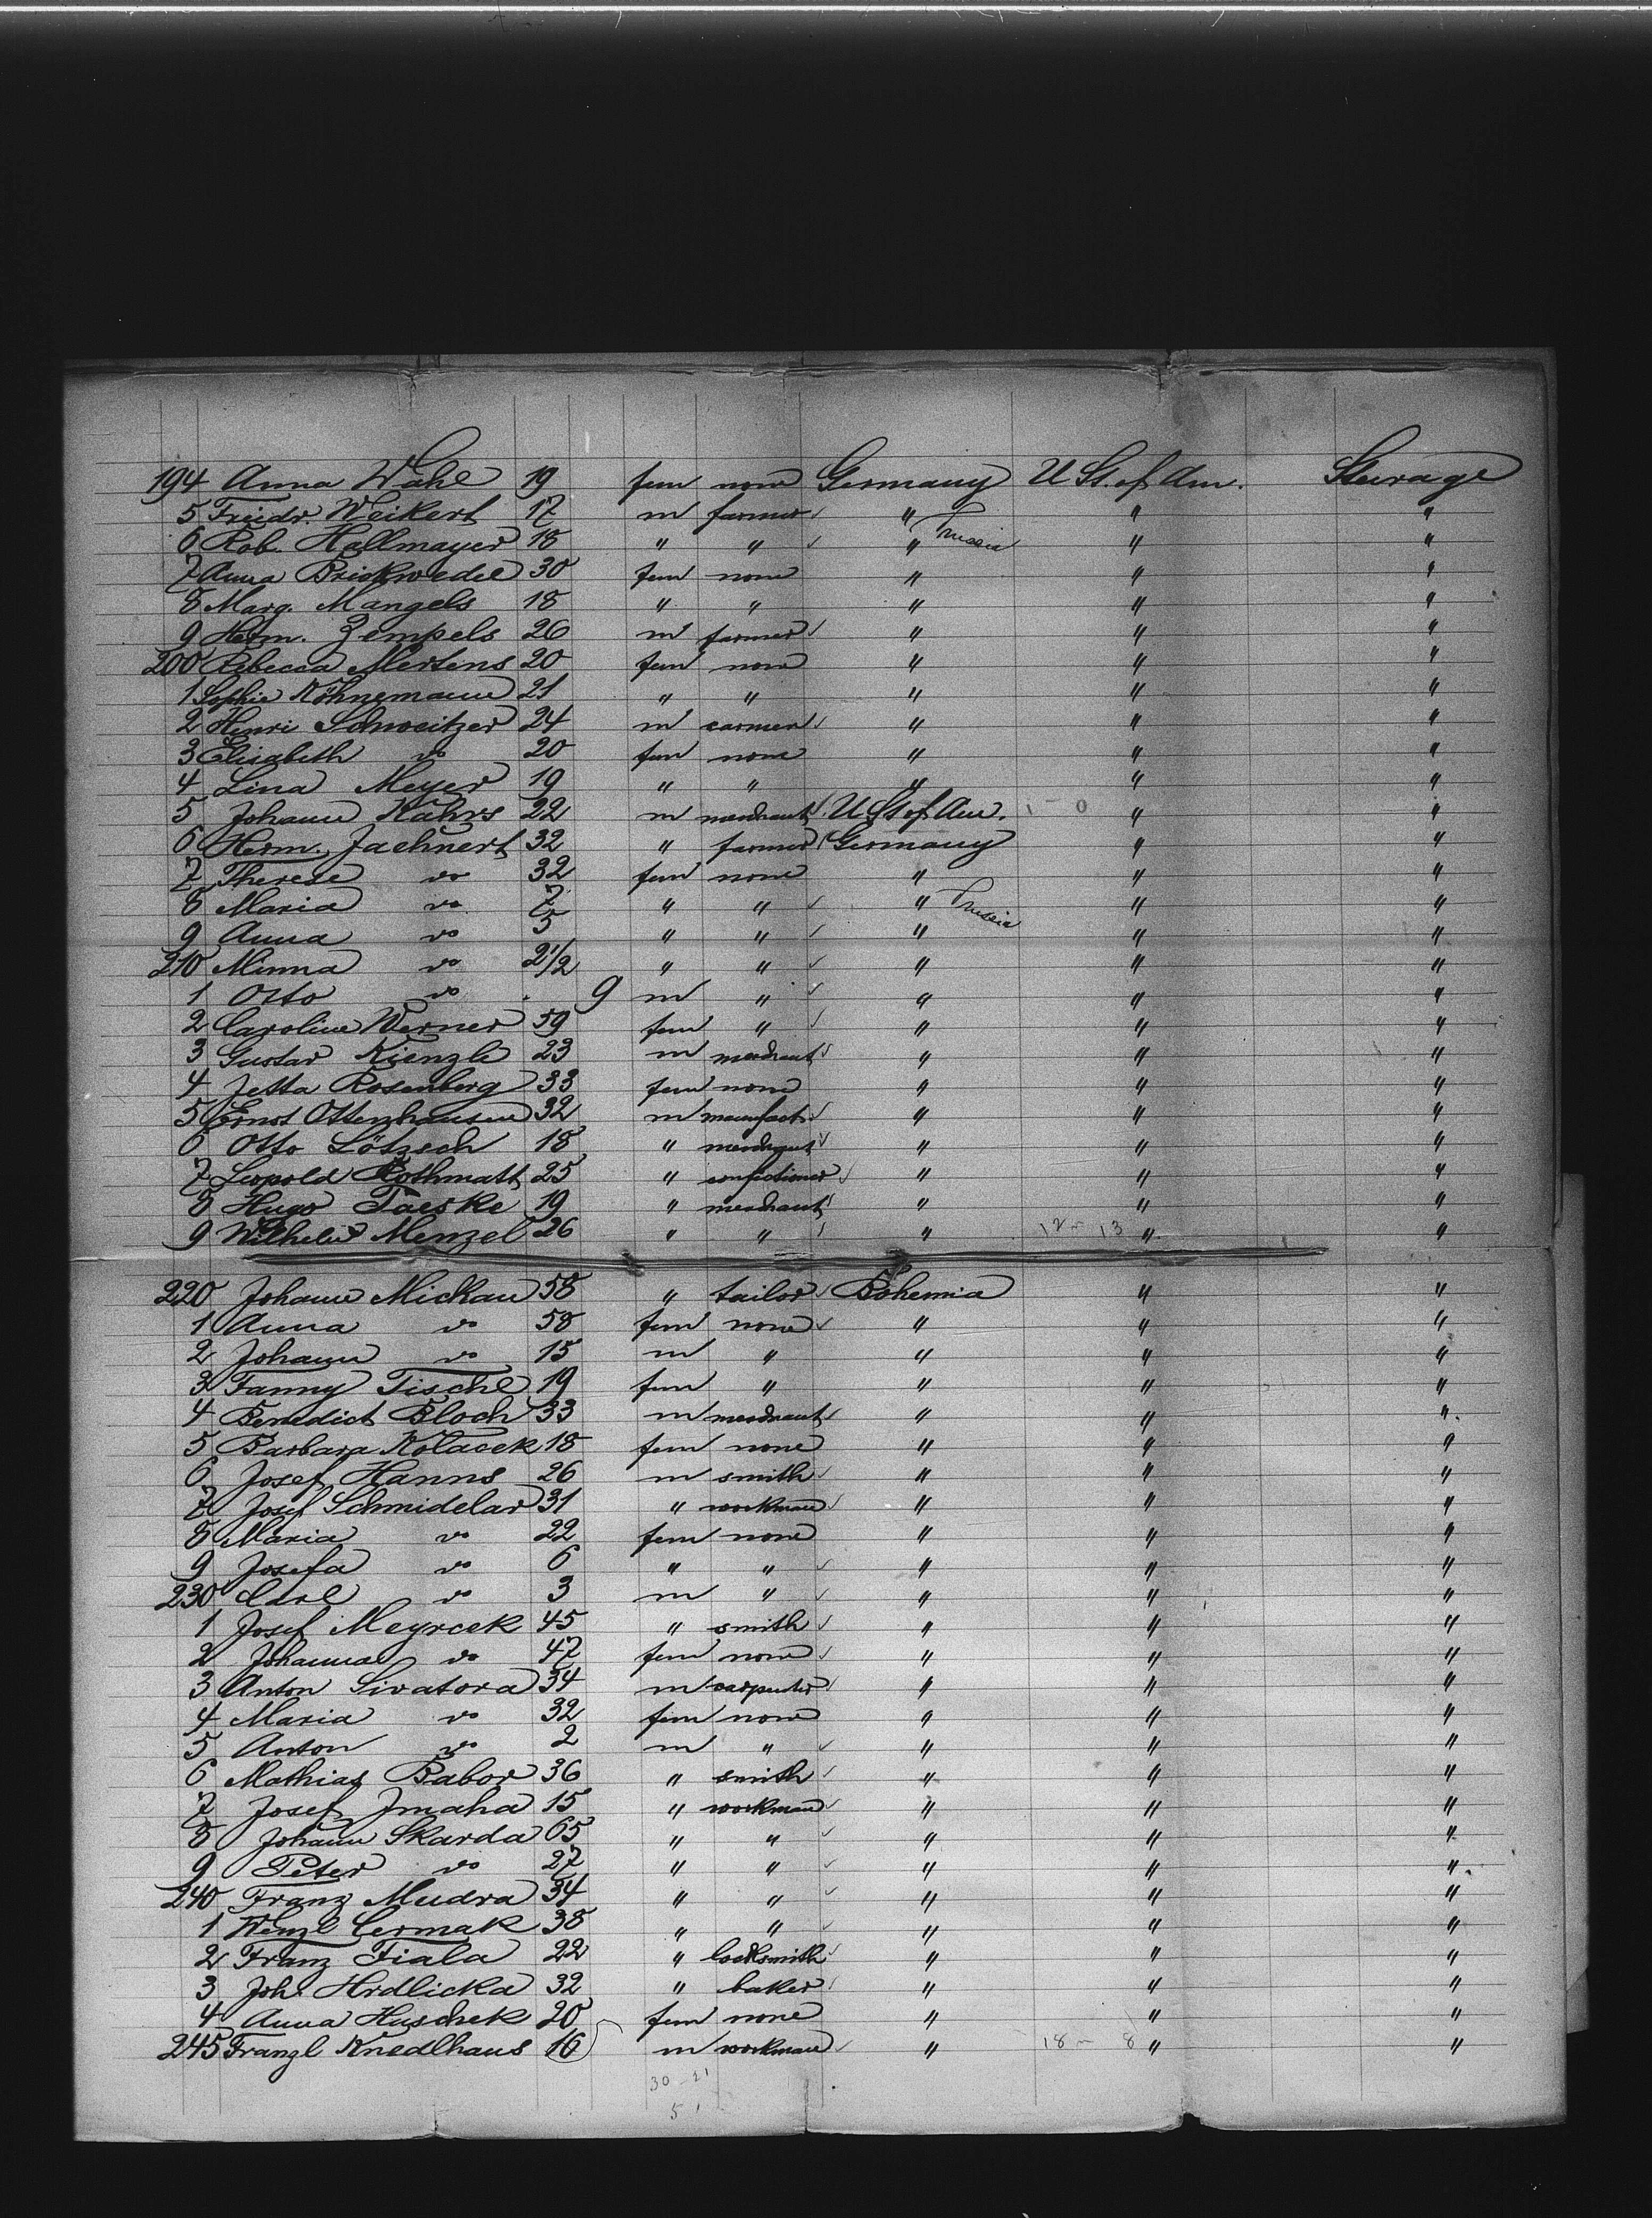 194 Anna Wahl 19 fem none Germany U St. of Am. Steerage
5 Friedr. Weikert 17 m farmer " " "
6 Rob. Hallmayer 18 " " " Prussia " "
7 Anna Brickwedel 30 fem none " " "
8 Marg. Mangels 18 " " " " "
9 Herm. Zempels 26 m farmer " " "
200 Rebecca Mertens 20 fem none " " "
1 Sophie Köhnemann 21 " " " " "
2 Henri Schweitzer 24 m " " "
3 Elisabeth do 20 fem none " " "
4 Lina Meyer 19 " " " " "
5 Johann Kahrs 22 m merchant U St of Am. 1 - 0 " "
6 Herm. Jaehnert 32 " farmer Germany " "
7 Therese do 32 fem none " " "
8 Maria do 7 " " " Prussia " "
9 Anna do 5 " " " " "
210 Minna do 2 1/2 " " " " "
1 Otto do . 9 m " " " "
2 Caroline Werner 59 fem " " " "
3 Gustav Kienzle 23 m merchant " " "
4 Jetta Rosenberg 33 fem none " " "
5 Ernst Ottenhausen 32 m manufact. " " "
6 Otto Lötzsch 18 " merchant " " "
7 Leopold Rothmatt 25 " confectioner " " "
8 Hugo Taeske 19 " merchant " " "
9 Wilhelm Menzel 26 " " " 12 - 13 " "
220 Johann Mickan 58 " tailor Bohemia " "
1 Anna do 58 fem none " " "
2 Johann do 15 m " " " "
3 Fanny Tischl 19 fem " " " "
4 Benedict Bloch 33 m merchant " " "
5 Barbara Kolacek 18 fem none " " "
6 Josef Hanns 26 m smith " " "
7 Josef Schmidelar 31 " workman " " "
8 Maria do 22 fem none " " "
9 Josefa do 6 " " " " "
230 Carl do 3 m " " " "
1 Josef Meyrcek 45 " smith " " "
2 Johanna do 47 fem none " " "
3 Anton Sivatora 34 m carpenter " " "
4 Maria do 32 fem none " " "
5 Anton do 2 m " " " "
6 Mathias Babor 36 " smith " " "
7 Josef Jmaha 15 " workman " " "
8 Johann Skarda 65 " " " " "
9 Peter do 27 " " " " "
240 Franz Mudra 34 " " " " "
1 Wenzl Cermak 38 " " " " "
2 Franz Fiala 22 " locksmith " " "
3 Joh. Hrdlicka 32 " baker " " "
4 Anna Huschek 20 fem none " " "
245 Franzl Knedlhans 16 m workman " 18 - 8 " "
30 - 21
51